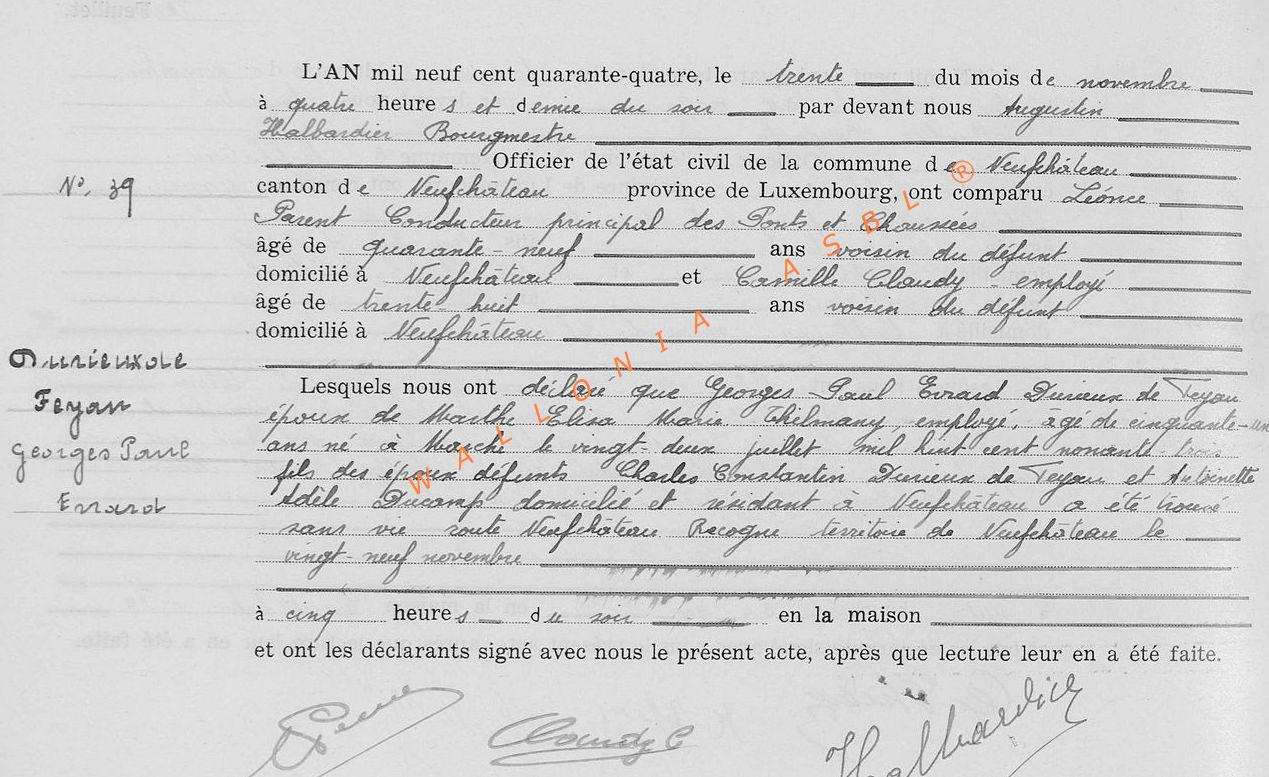 L'AN mil neuf cent quarante-quatre, le trente du mois de novembre
à quatre heures et demie du soir par devant nous Augustin
Halbardier Bourgmestre
Officier de l'état civil de la commune de Neufchâteau
N°. 39
canton de Neufchâteau province de Luxembourg, ont comparu Léonce
Parent Conducteur principal des Ponts et Chaussées
âgé de quarante-neuf ans voisin du défunt
domicilié à Neufchâteau et Camille Claudy - employé
âgé de trente-huit ans voisin du défunt
domicilié à Neufchâteau
Durieux de
Feyan
Georges Paul
Evrard
Lesquels nous ont déclaré que Georges Paul Evrard Durieux de Feyan
époux de Marthe Elisa Marie Thilmany, employé, âgé de cinquante-un
ans né à Marche le vingt-deux juillet mil huit cent nonante trois
fils des époux défunts Charles Constantin Durieux de Feyan et Antoinette
Adèle Ducamp domicilié et résidant à Neufchâteau a été trouvé
sans vie route Neufchâteau Recogne territoire de Neufchâteau le
vingt-neuf novembre
à cinq heures du soir en la maison
et ont les déclarants signé avec nous le présent acte, après que lecture leur en a été faite.
Claudy C
Halbardier
WALLONIA ASBL ®